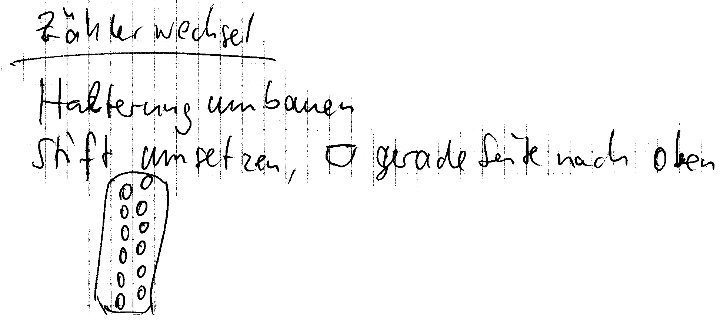 Zählerwechsel
Halterung umbauen
Stift umsetzen, gerade Seite nach oben